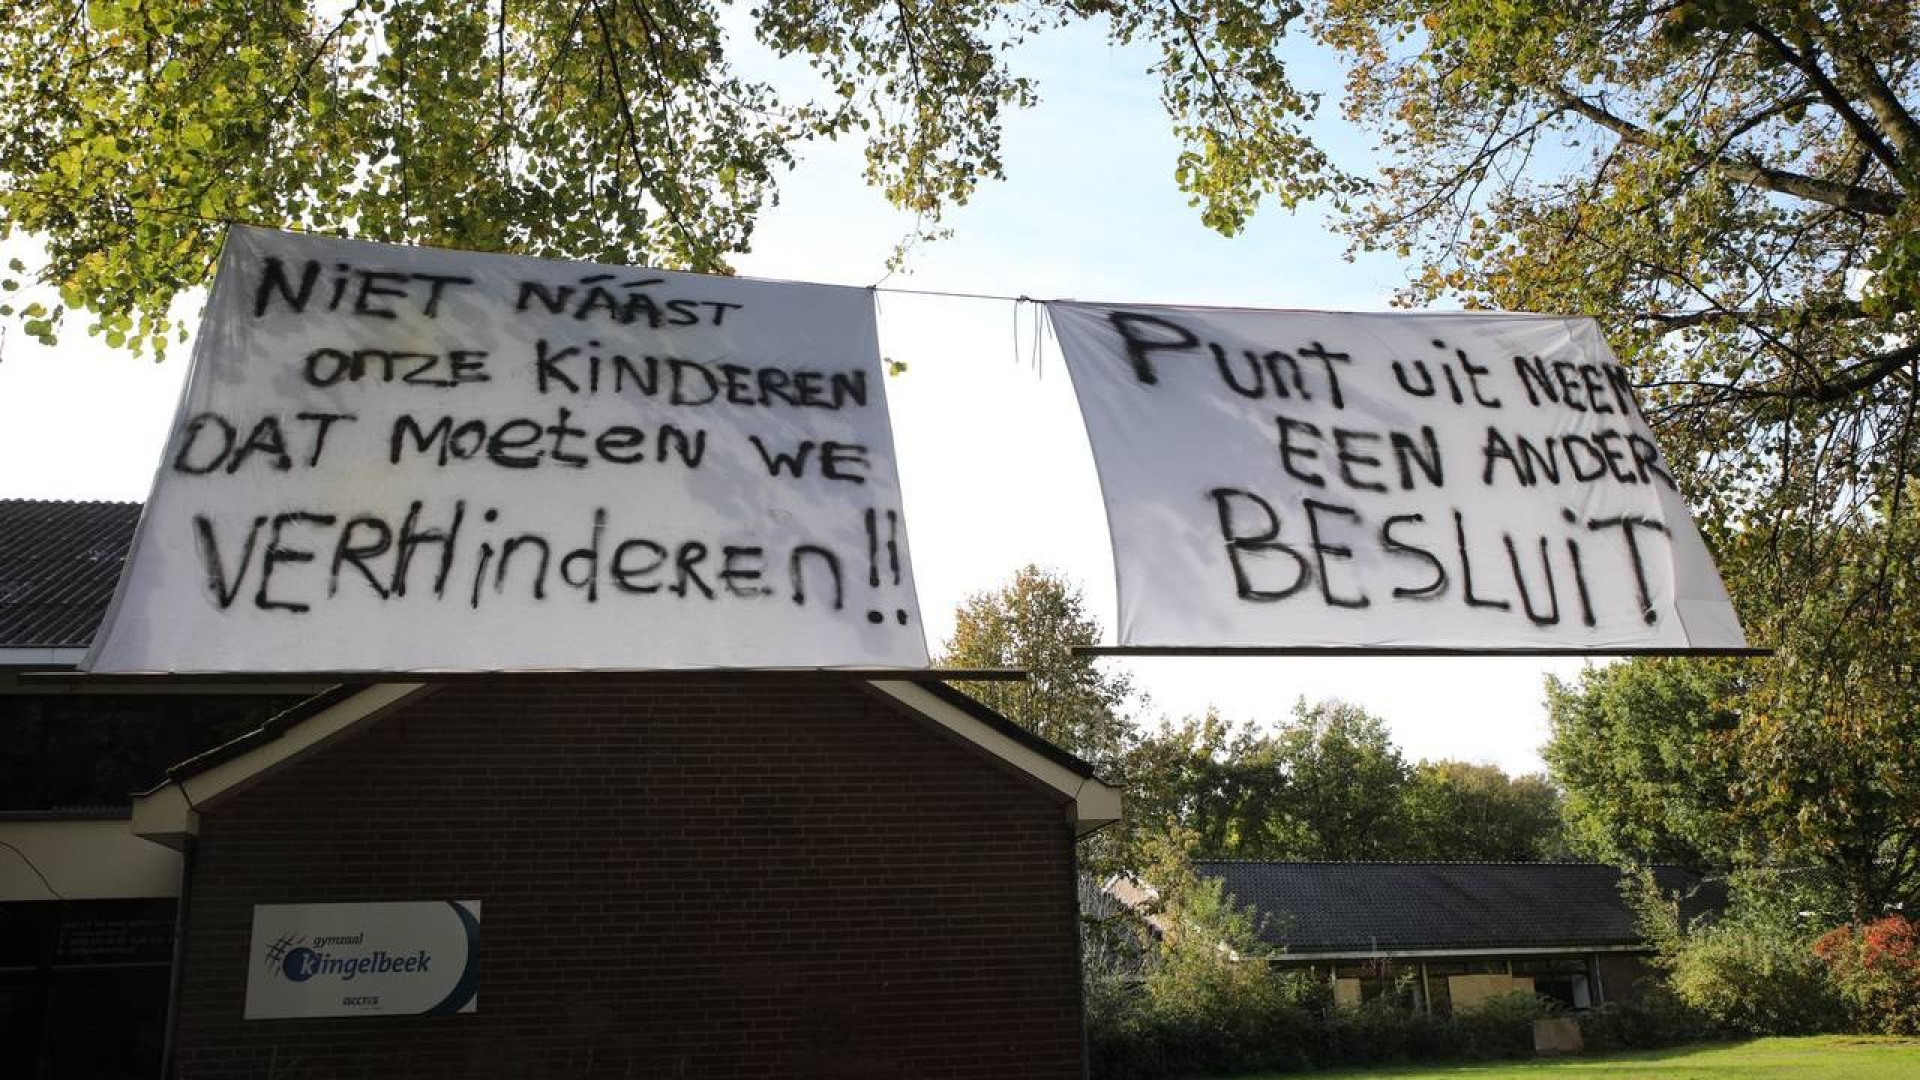 NiET NÁÁST
onze KiNDEREN
DAT MoeteN WE
VERHinderen!!
Punt uit NEEM
EEN ANDER
BESLUiT
gymzaal
Klingelbeek
accres